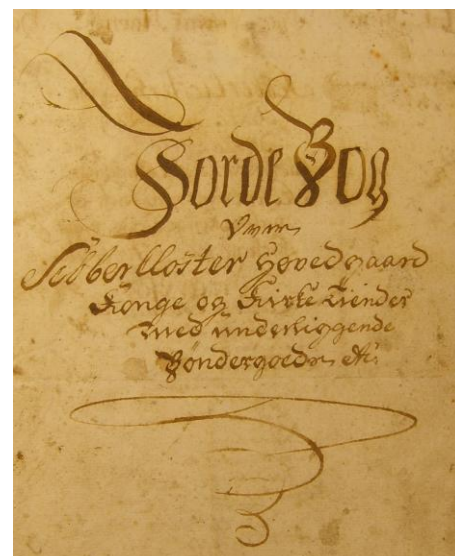 Jorde Bog
Over
Sebberkloster Hovedgaard
Konge og Kirke Tiender
med underliggende
Bøndergoeds etc.